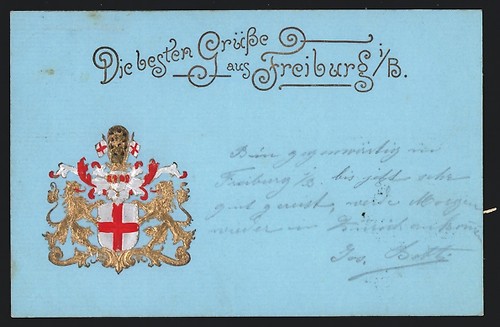 Die besten Grüße
aus Freiburg i/B.
Bin gegenwärtig in
Freiburg i/B. bis jetzt sehr
gut gereist, werde Morgen
wieder in
Jos.